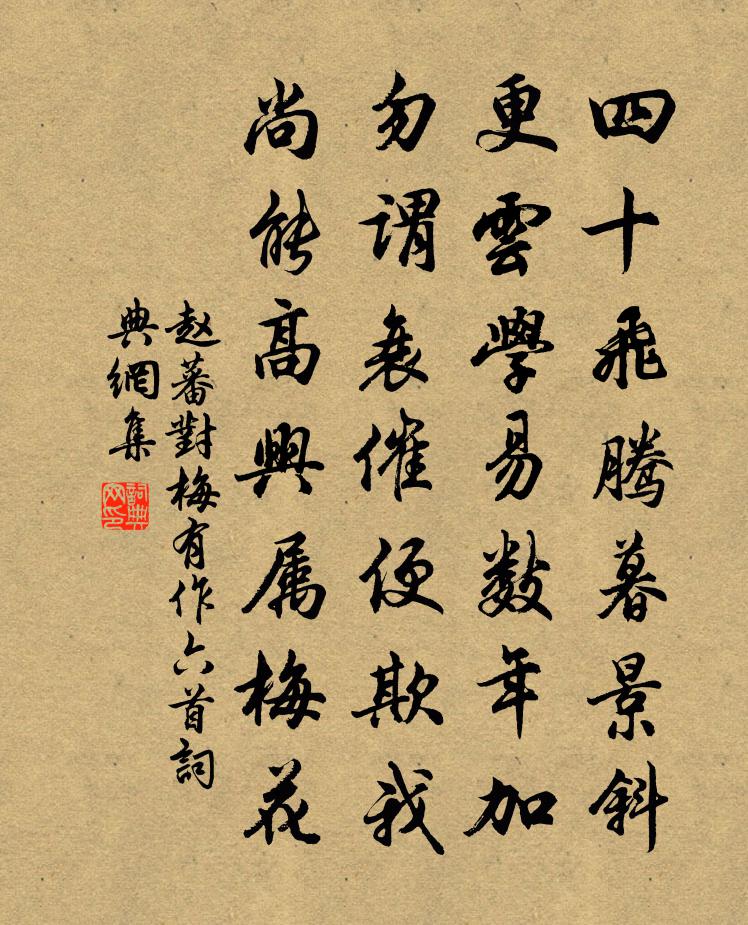 四十飛騰暮景斜
更雲學易數年加
勿謂衰催便欺我
尚能高興属梅花
赵蕃對梅有作六首詞
典網集
詞典
网印